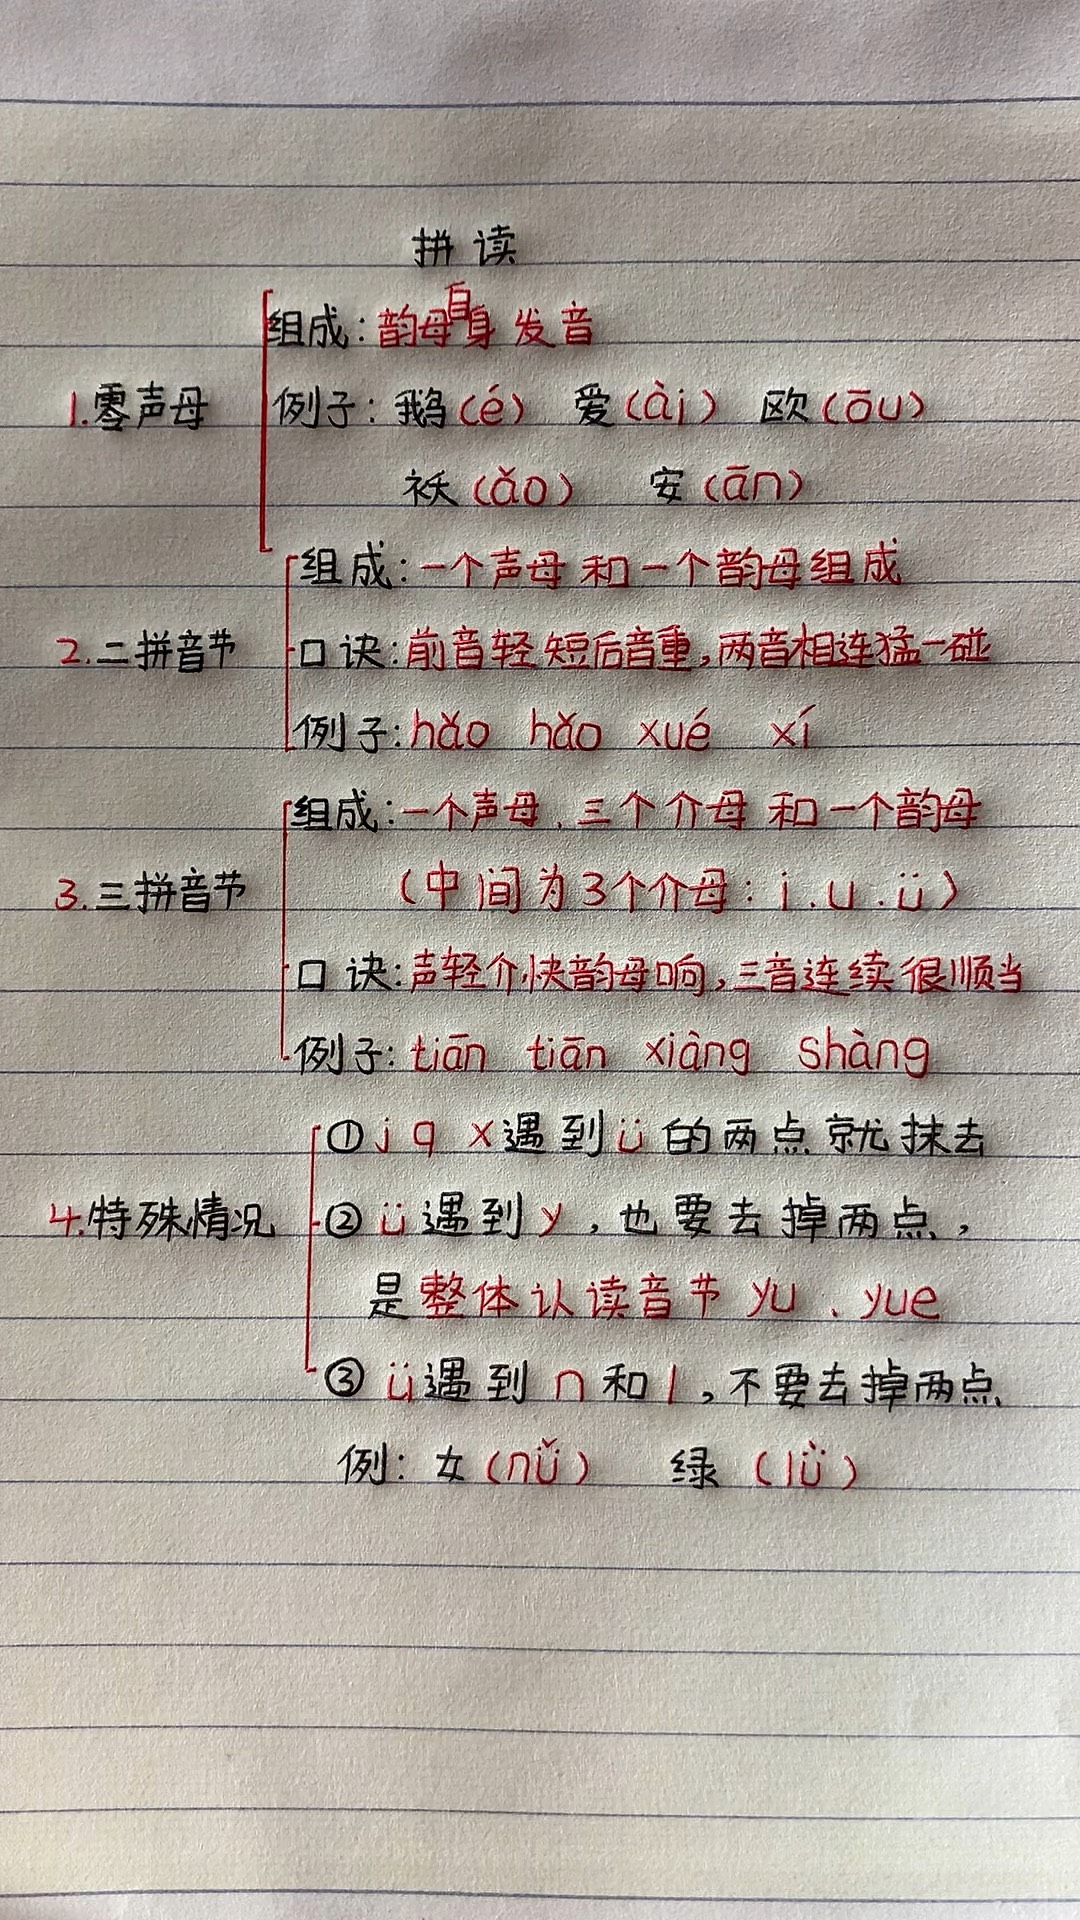 拼读
组成:韵母自身发音
1.零声母
例子:鹅(é) 爱(ài) 欧(ōu)
袄(ǎo) 安(ān)
组成:一个声母和一个韵母组成
2.二拼音节
口诀:前音轻短后音重,两音相连猛一碰
例子:hǎo hǎo xué xí
组成:一个声母、三个介母和一个韵母
3.三拼音节
(中间为3个介母:i.u.ü)
口诀:声轻介快韵母响,三音连续很顺当
例子:tiān tiān xiàng shàng
①j q x遇到ü的两点就抹去
4.特殊情况
②ü遇到y,也要去掉两点,
是整体认读音节yu、yue
③ü遇到n和l,不要去掉两点
例:女(nǚ) 绿(lǜ)